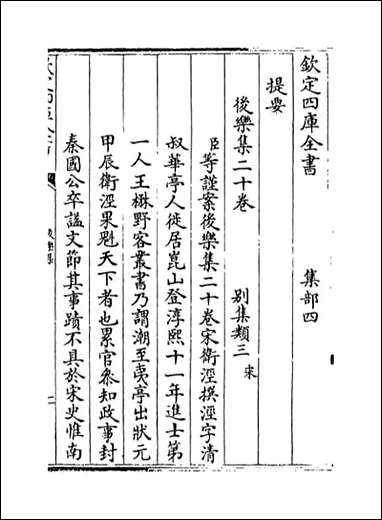 欽定四庫全書　集部四
提要
後樂集二十卷　別集類三宋
臣等謹案後樂集二十卷宋衛涇撰涇字清
叔華亭人徙居崑山登淳熙十一年進士第
一人王楙野客叢書乃謂潮至夷亭出狀元
甲辰衛涇果魁天下者也累官參知政事封
秦國公卒諡文節其事蹟不具於宋史惟南
後樂集